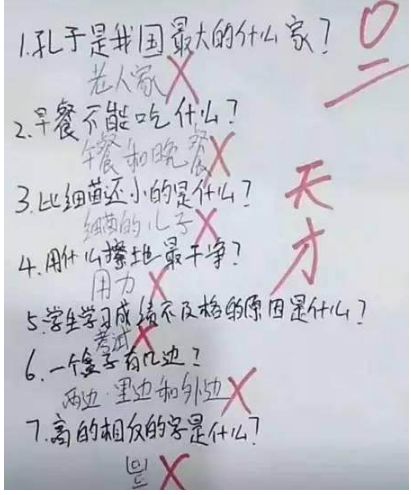 1.孔子是我国最大的什么家?
老人家
2.早餐不能吃什么?
午餐和晚餐
3.比细菌还小的是什么?
细菌的儿子
4.用什么擦地最干净?
用力
5.学生学习成绩不及格的原因是什么?
考试
6.一个盒子有几边?
两边.里边和外边
7.高的相反的字是什么?
0
天才